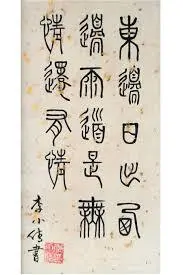 東邊日出西
邊雨道是無
情還有情
李小書